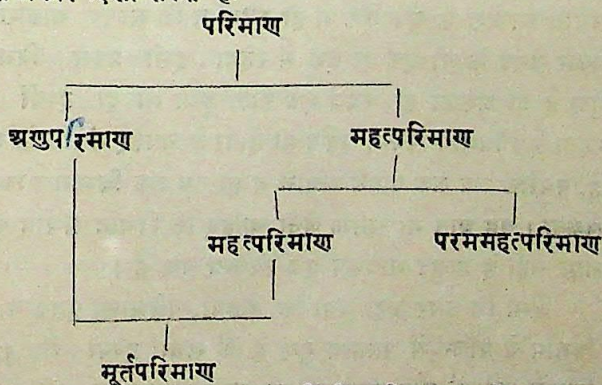 परिमाण
अणुपरिमाण महत्परिमाण
महत्परिमाण परममहत्परिमाण
मूर्तपरिमाण